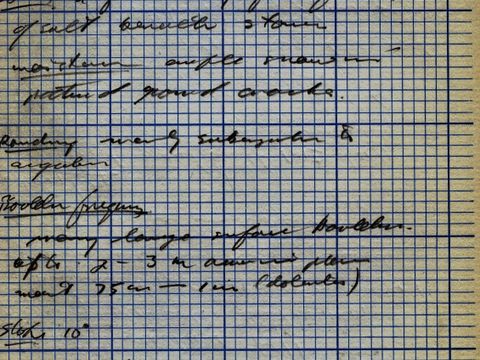 of salt beneath stones
moisture ample
patterned ground cracks.
Rounding mainly subangular &
angular
Boulder frequency
many large surface boulders.
up to 2 - 3 m
most 75 cm — 1 m (dolerites)
Slope 10°